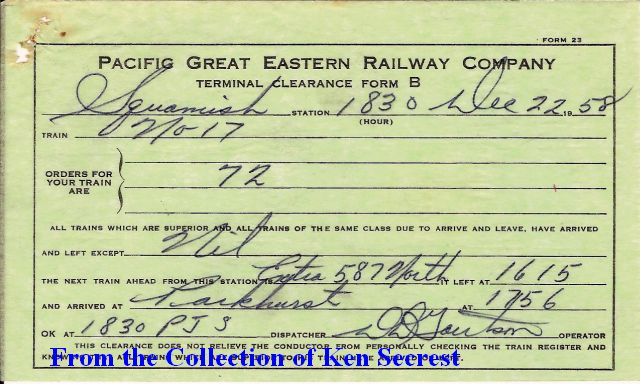 FORM 23
PACIFIC GREAT EASTERN RAILWAY COMPANY
TERMINAL CLEARANCE FORM B
Squamish STATION 1830 Dec 22 1958
(HOUR)
TRAIN No 17
ORDERS FOR
YOUR TRAIN 72
ARE
ALL TRAINS WHICH ARE SUPERIOR AND ALL TRAINS OF THE SAME CLASS DUE TO ARRIVE AND LEAVE, HAVE ARRIVED
AND LEFT EXCEPT Nil
THE NEXT TRAIN AHEAD FROM THIS STATION IS Extra 587 North IT LEFT AT 1615
AND ARRIVED AT Parkhurst AT 1756
OK AT 1830 PJS DISPATCHER OPERATOR
THIS CLEARANCE DOES NOT RELIEVE THE CONDUCTOR FROM PERSONALLY CHECKING THE TRAIN REGISTER AND
From the Collection of Ken Secrest